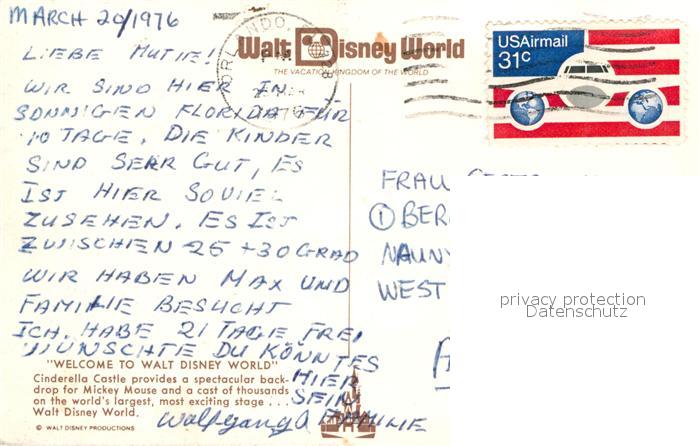 MARCH 20/1976
LIEBE MUTIE!
WIR SIND HIER IN
SONNIGEN FLORIDA FÜR
10 TAGE, DIE KINDER
SIND SEHR GUT, ES
IST HIER SOVIEL
ZUSEHEN. ES IST
ZWISCHEN 25 + 30 GRAD
WIR HABEN MAX UND
FAMILIE BESUCHT
ICH HABE 21 TAGE FREI
WÜNSCHTE DU KÖNNTES
HIER
SEIN
Wolfgang & FAMILIE
"WELCOME TO WALT DISNEY WORLD"
Cinderella Castle provides a spectacular back-
drop for Mickey Mouse and a cast of thousands
on the world's largest, most exciting stage . . .
Walt Disney World.
© WALT DISNEY PRODUCTIONS
Walt Disney World
THE VACATION KINGDOM OF THE WORLD
ORLANDO
USAirmail
31c
FRAU
① BER
NAUNY
WEST
privacy protection
Datenschutz